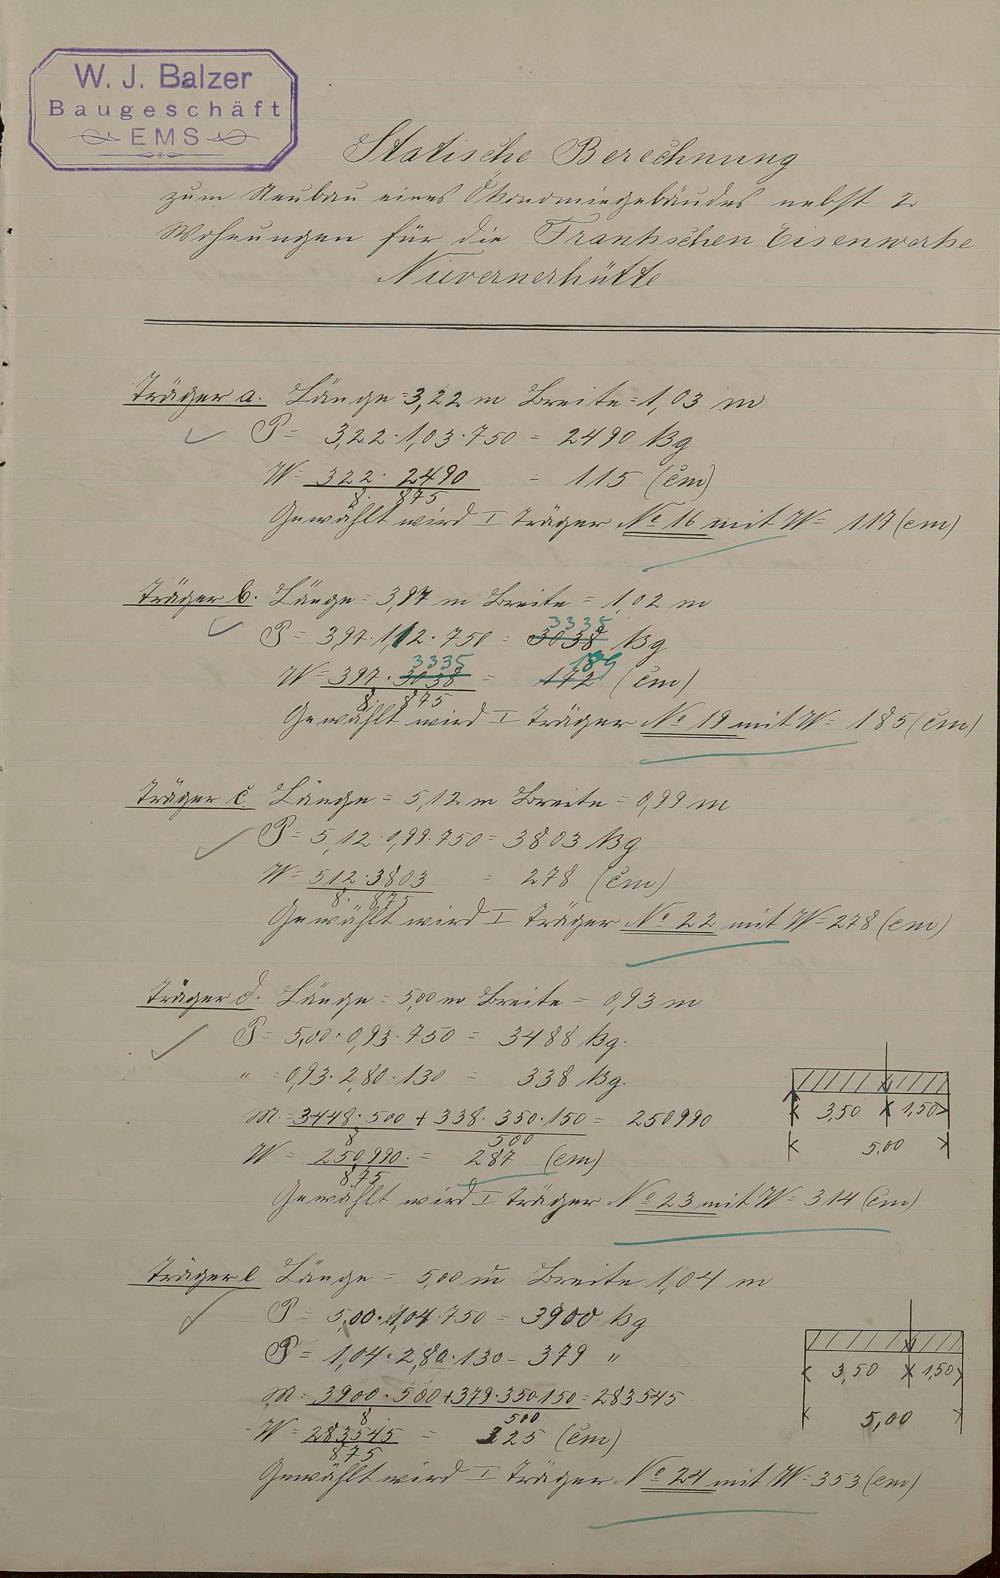 W. J. Balzer
Baugeschäft
EMS
Statische Berechnung
zum Neubau eines Ökonomiegebäudes nebst 2
Wohnungen für die Frankschen Eisenwerke
Nievernerhütte
Träger a. Länge = 3,22 m Breite = 1,03 m
P = 3,22 · 1,03 · 750 = 2490 Kg
W = 322 · 2490 = 115 (cm)
8 · 875
Gewählt wird I Träger No 16 mit W = 117 (cm)
Träger b. Länge = 3,97 m Breite = 1,02 m
3335
P = 397 · 1,12 · 750 = 3038 Kg
3335 189
W = 397 · 3038 = 172 (cm)
8 · 875
Gewählt wird I Träger No 19 mit W = 185 (cm)
Träger c Länge = 5,12 m Breite = 0,99 m
P = 5,12 · 0,99 · 750 = 3803 Kg
W = 512 · 3803 = 278 (cm)
8 · 875
Gewählt wird I Träger No 22 mit W = 278 (cm)
Träger d. Länge = 5,00 m Breite = 0,93 m
P = 5,00 · 0,93 · 750 = 3488 Kg.
" = 0,93 · 2,80 · 130 = 338 Kg.
M = 3448 · 500 + 338 · 350 · 150 = 250990
8 500
W = 250990 = 287 (cm)
875
Gewählt wird I Träger No 23 mit W = 314 (cm)
3,50 1,50
5,00
Träger e Länge = 5,00 m Breite 1,04 m
P = 5,00 · 1,04 · 750 = 3900 kg
P' = 1,04 · 2,80 · 130 - 379 "
M = 3900 · 500 + 379 · 350 · 150 = 283545
8 500
W = 283545 = 325 (cm)
875
Gewählt wird I Träger No 24 mit W = 353 (cm)
3,50 1,50
5,00